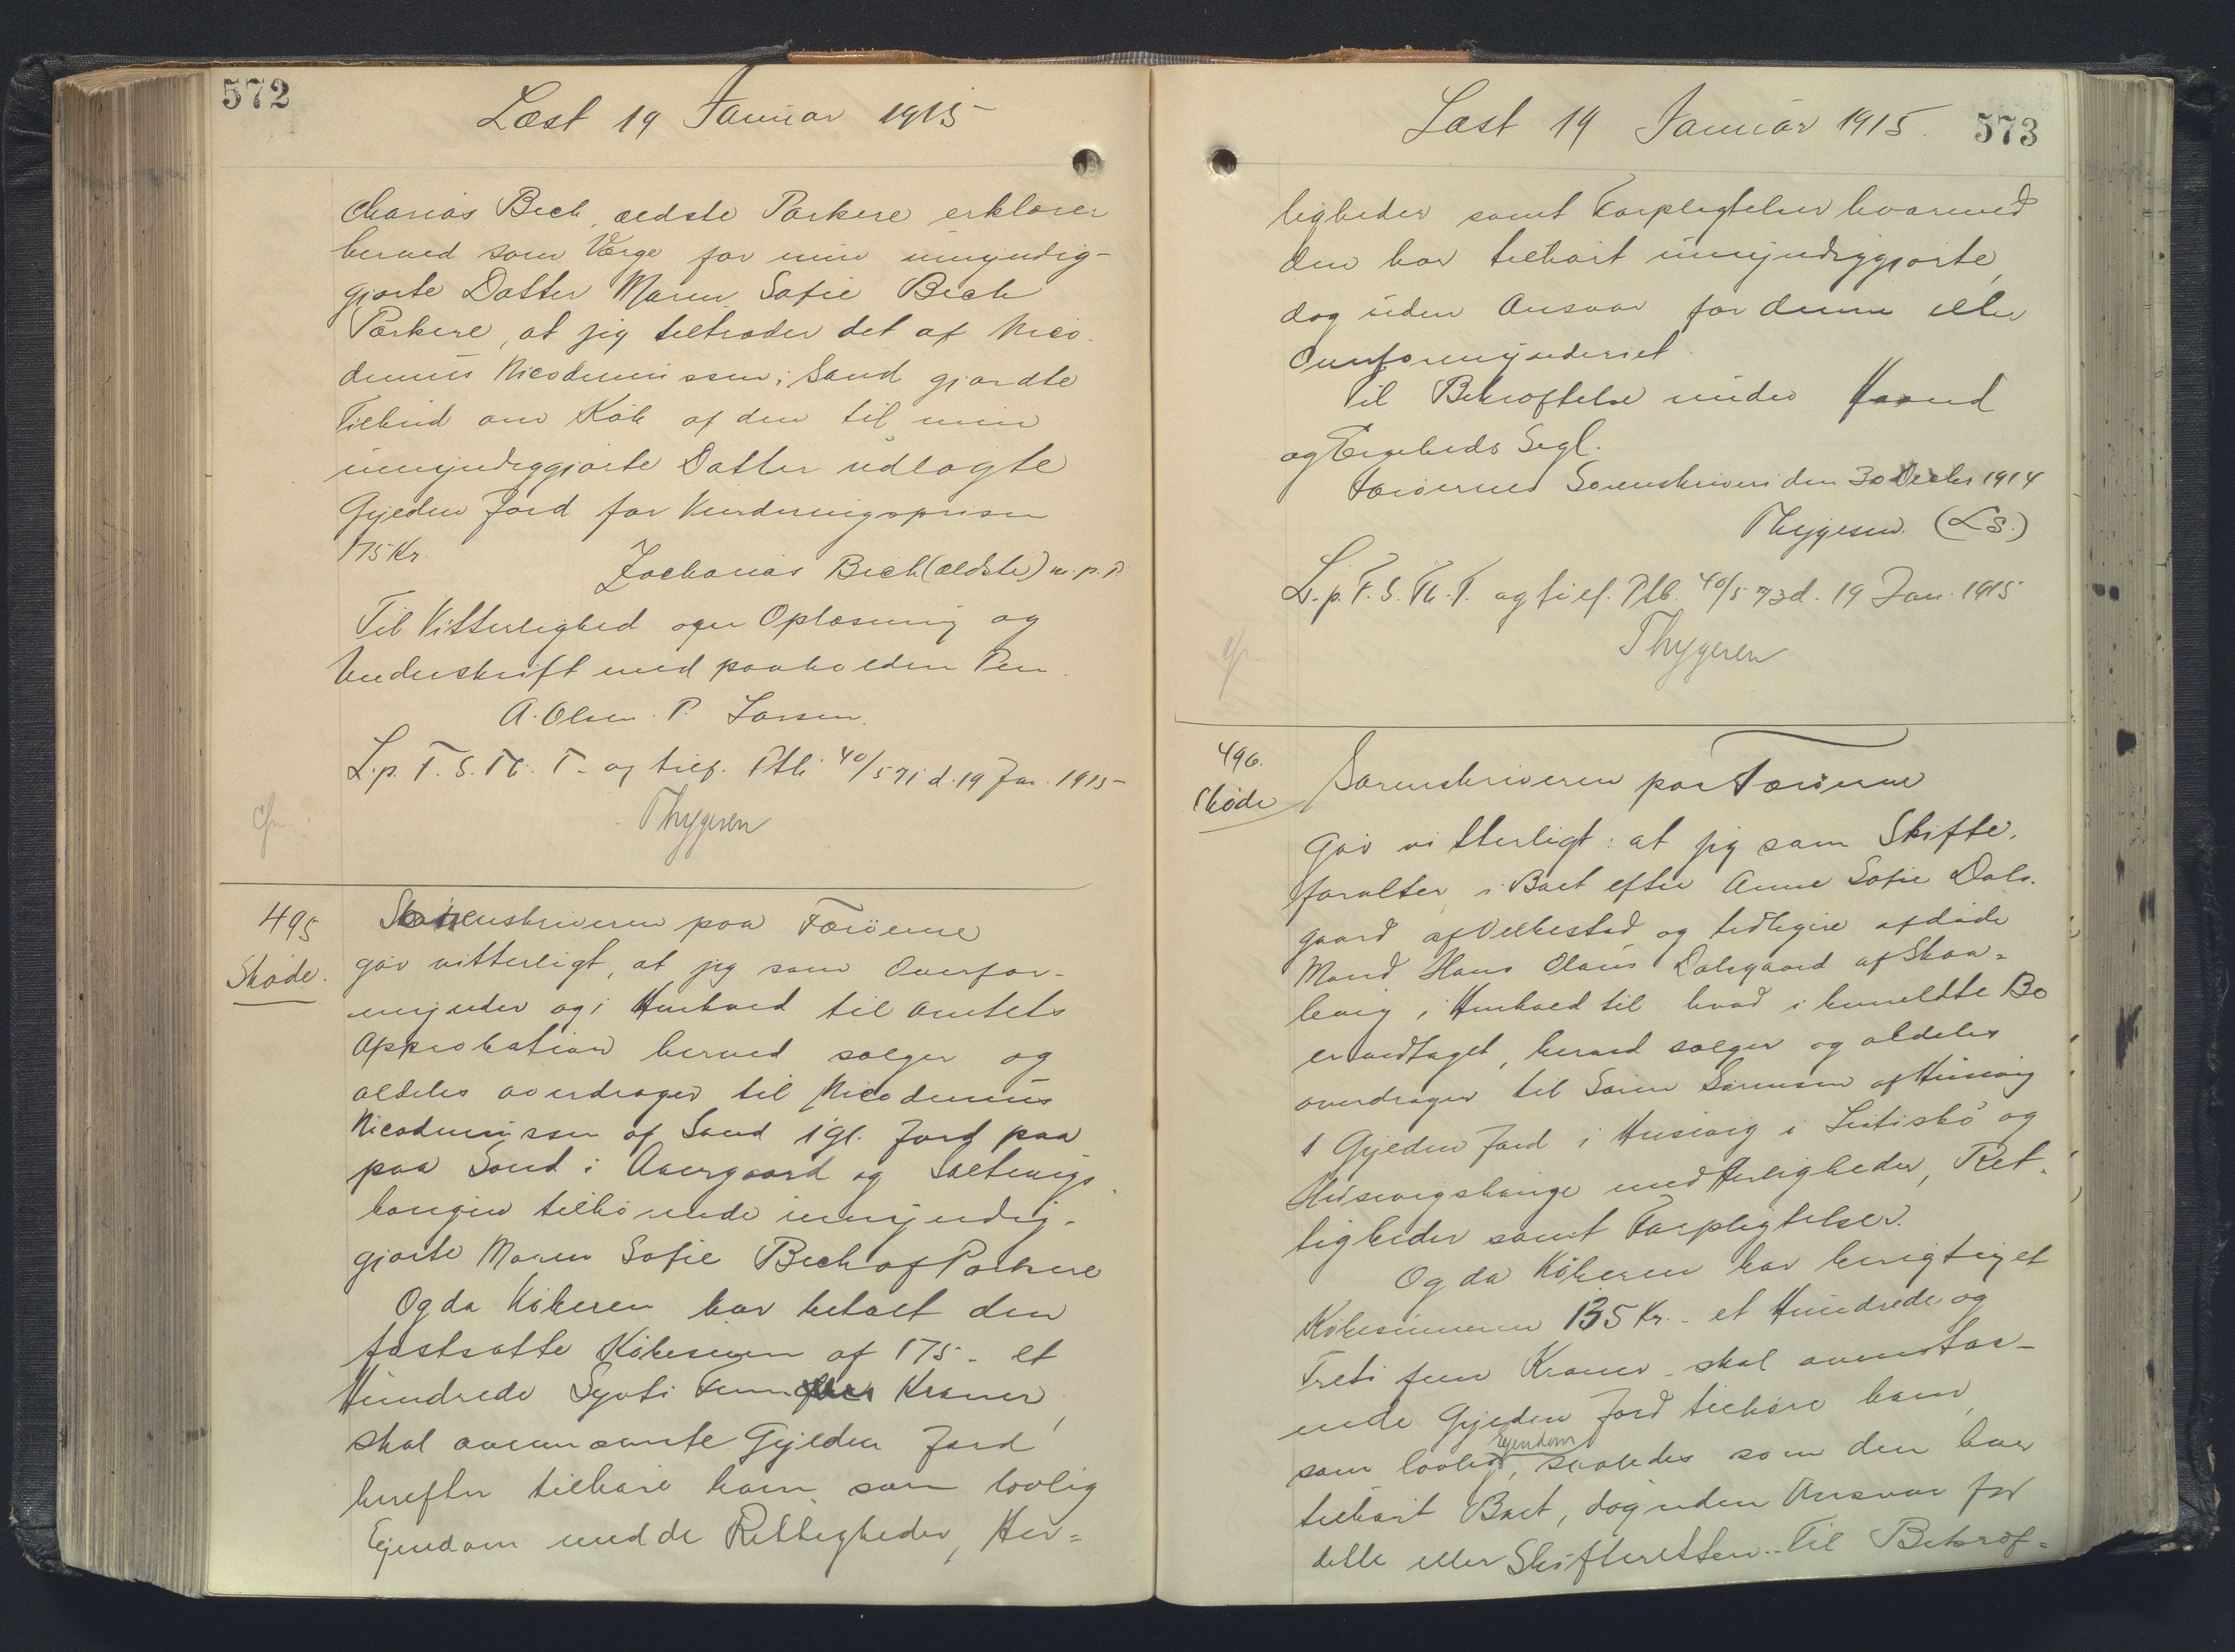 572
Læst 19 Januar 1915
charias Bech, ældste Porkere erklærer
herved som Værge for min umyndig-
gjorte Datter Maren Sofie Bech
Porkere, at jeg tiltræder det af Nico-
demus Nicodemussen i Sand gjordte
Tilbud om Køb af den til min
umyndiggjorte Datter udlagte
Gylden Jord for Vurderingsprisen
175 Kr.
Zacharias Bech (ældste) m. p. P.
Til Vitterlighed om Oplæsning og
Underskrift med paaholden Pen.
A. Olsen. P. Larsen.
L. p. F. S. Th. T. og tilf. Ptb. 40/571 d. 19 Jan. 1915
Thygesen
495
Skøde.
Sorenskriveren paa Færøerne
gør vitterligt, at jeg som Overfor-
mynder og i Henhold til Amtets
Approbation herved sælger og
aldeles overdrager til Nicodemus
Nicodemussen af Sand 1 gl. Jord paa
paa Sand i Aaergaard og Saltvigs
haugen tilhørende umyndig-
gjorte Maren Sofie Bech af Porkere
Og da Køberen har betalt den
fastsatte Købesum af 175 - et
Hundrede Syvti Fem Kroner,
skal ovennævnte Gylden Jord
herefter tilhøre ham som lovlig
Ejendom med de Rettigheder, Her=
Læst 19 Januar 1915.
573
ligheder samt Forpligtelser hvormed
den har tilhørt umyndiggjorte,
dog uden Ansvar for denne eller
Overformynderiet.
Til Bekræftelse under Haand
og Embeds Segl.
Færøernes Sorenskriveri den 30 Decbr 1914
Thygesen. (L.S.)
L. p. F. S. Th. T. og tilf. Ptb. 40/573 d. 19 Jan. 1915
Thygesen
496.
Skøde
Sorenskriveren paa Færøerne
Gør vitterligt: at jeg som Skifte-
forvalter i Boet efter Anne Sofie Dals-
gaard af Velbestad og tidligere afdøde
Mand Hans Olaus Dalsgaard af Skaa=
levig i Henhold til hvad i bemeldte Bo
er vedtaget, herved sælger og aldeles
overdrager til Søren Sørensen af Husevig
1 Gylden Jord i Husevig i Litiskø og
Husevigshauge med Herligheder, Ret-
tigheder samt Forpligtelser.
Og da Køberen har berigtiget
Købesummen 135 Kr. - et Hundrede og
Treti fem Kroner - skal ovenstaa-
ende Gylden Jord tilhøre ham,
som lovlig Ejendom, saaledes som den har
tilhørt Boet, dog uden Ansvar for
dette eller Skifteretten. Til Bekræf=